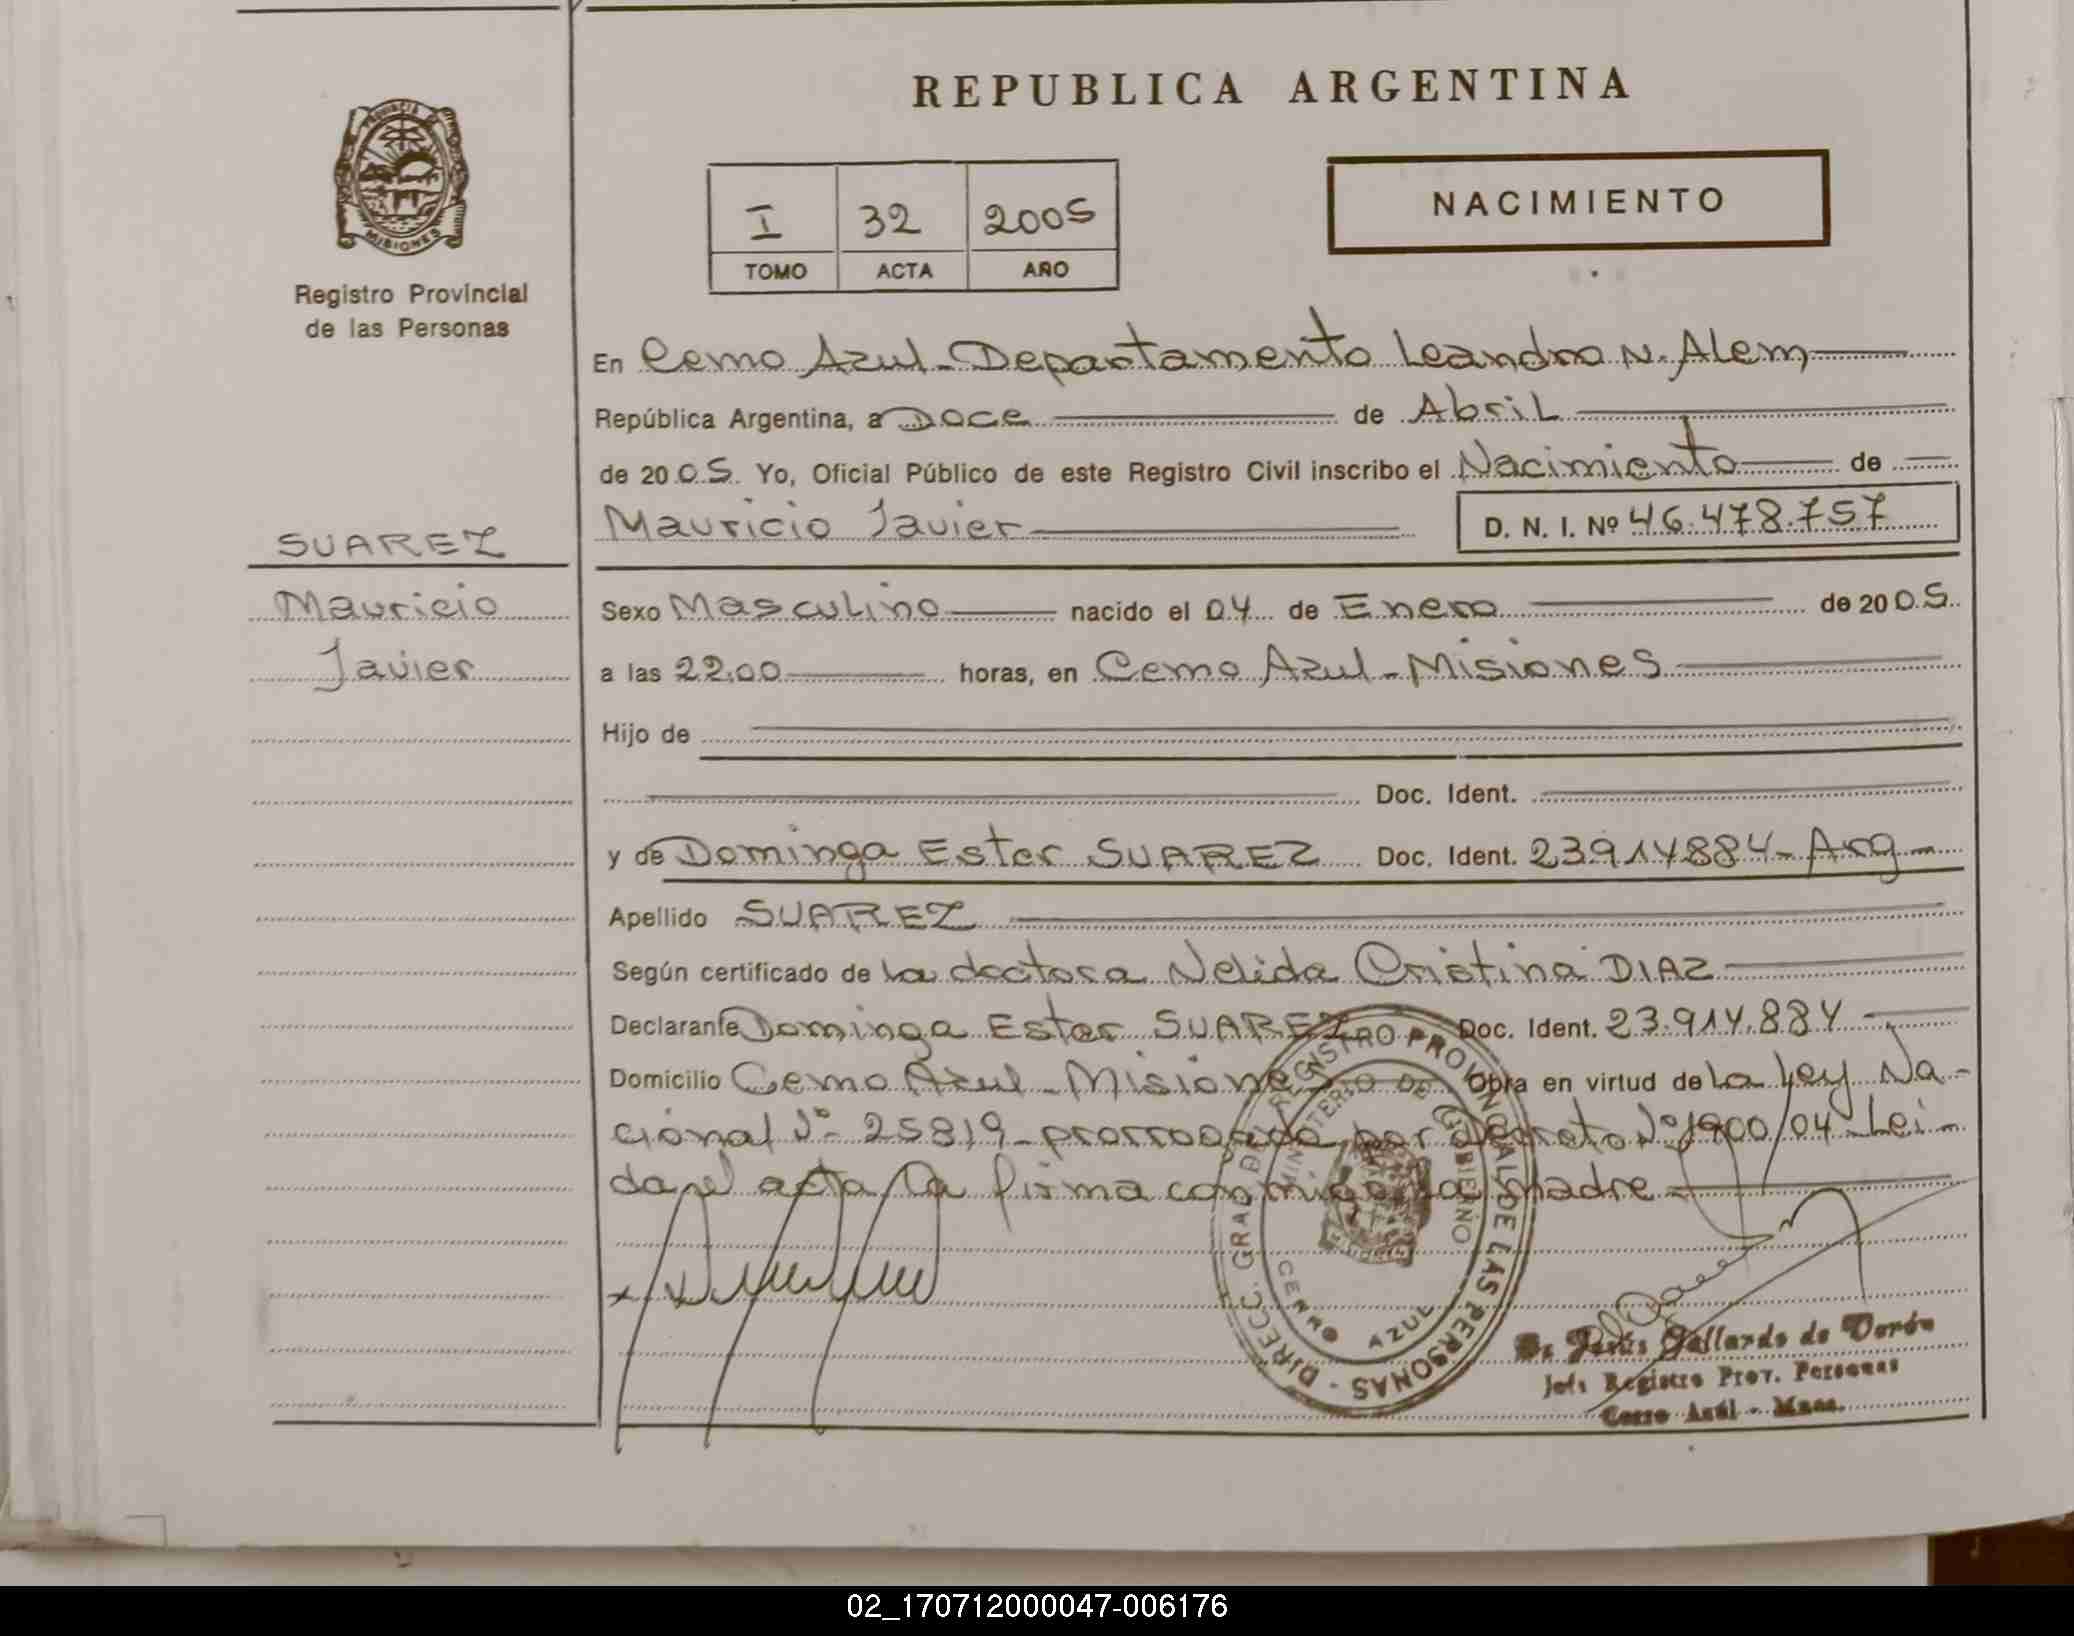 REPUBLICA ARGENTINA
PROVINCIA DE
MISIONES
Registro Provincial
de las Personas
I 32 2005
TOMO ACTA AÑO
NACIMIENTO
En Cerro Azul - Departamento Leandro N. Alem
República Argentina, a Doce de Abril
de 20 05. Yo, Oficial Público de este Registro Civil inscribo el Nacimiento de
Mauricio Javier D. N. I. Nº 46.478.757
SUAREZ
Mauricio
Javier
Sexo Masculino nacido el 04 de Enero de 20 05.
a las 22,00 horas, en Cerro Azul - Misiones
Hijo de
Doc. Ident.
y de Dominga Ester SUAREZ Doc. Ident. 23.914.884 - Arg
Apellido SUAREZ
Según certificado de la doctora Nelida Cristina DIAZ
Declarante Dominga Ester SUAREZ Doc. Ident. 23.914.884
Domicilio Cerro Azul - Misiones Obra en virtud de la Ley Na-
cional Nº 25819 - prorrogada por decreto Nº 1900/04 - Lei-
da el acta la firma conmigo la madre
DIRECC. GRAL DE REGISTRO PROVINCIAL DE LAS PERSONAS
MINISTERIO DE GOBIERNO
CERRO AZUL
Jesús Gallardo de Verón
Jefe Registro Prov. Personas
Cerro Azul - Mnes.
02_170712000047-006176